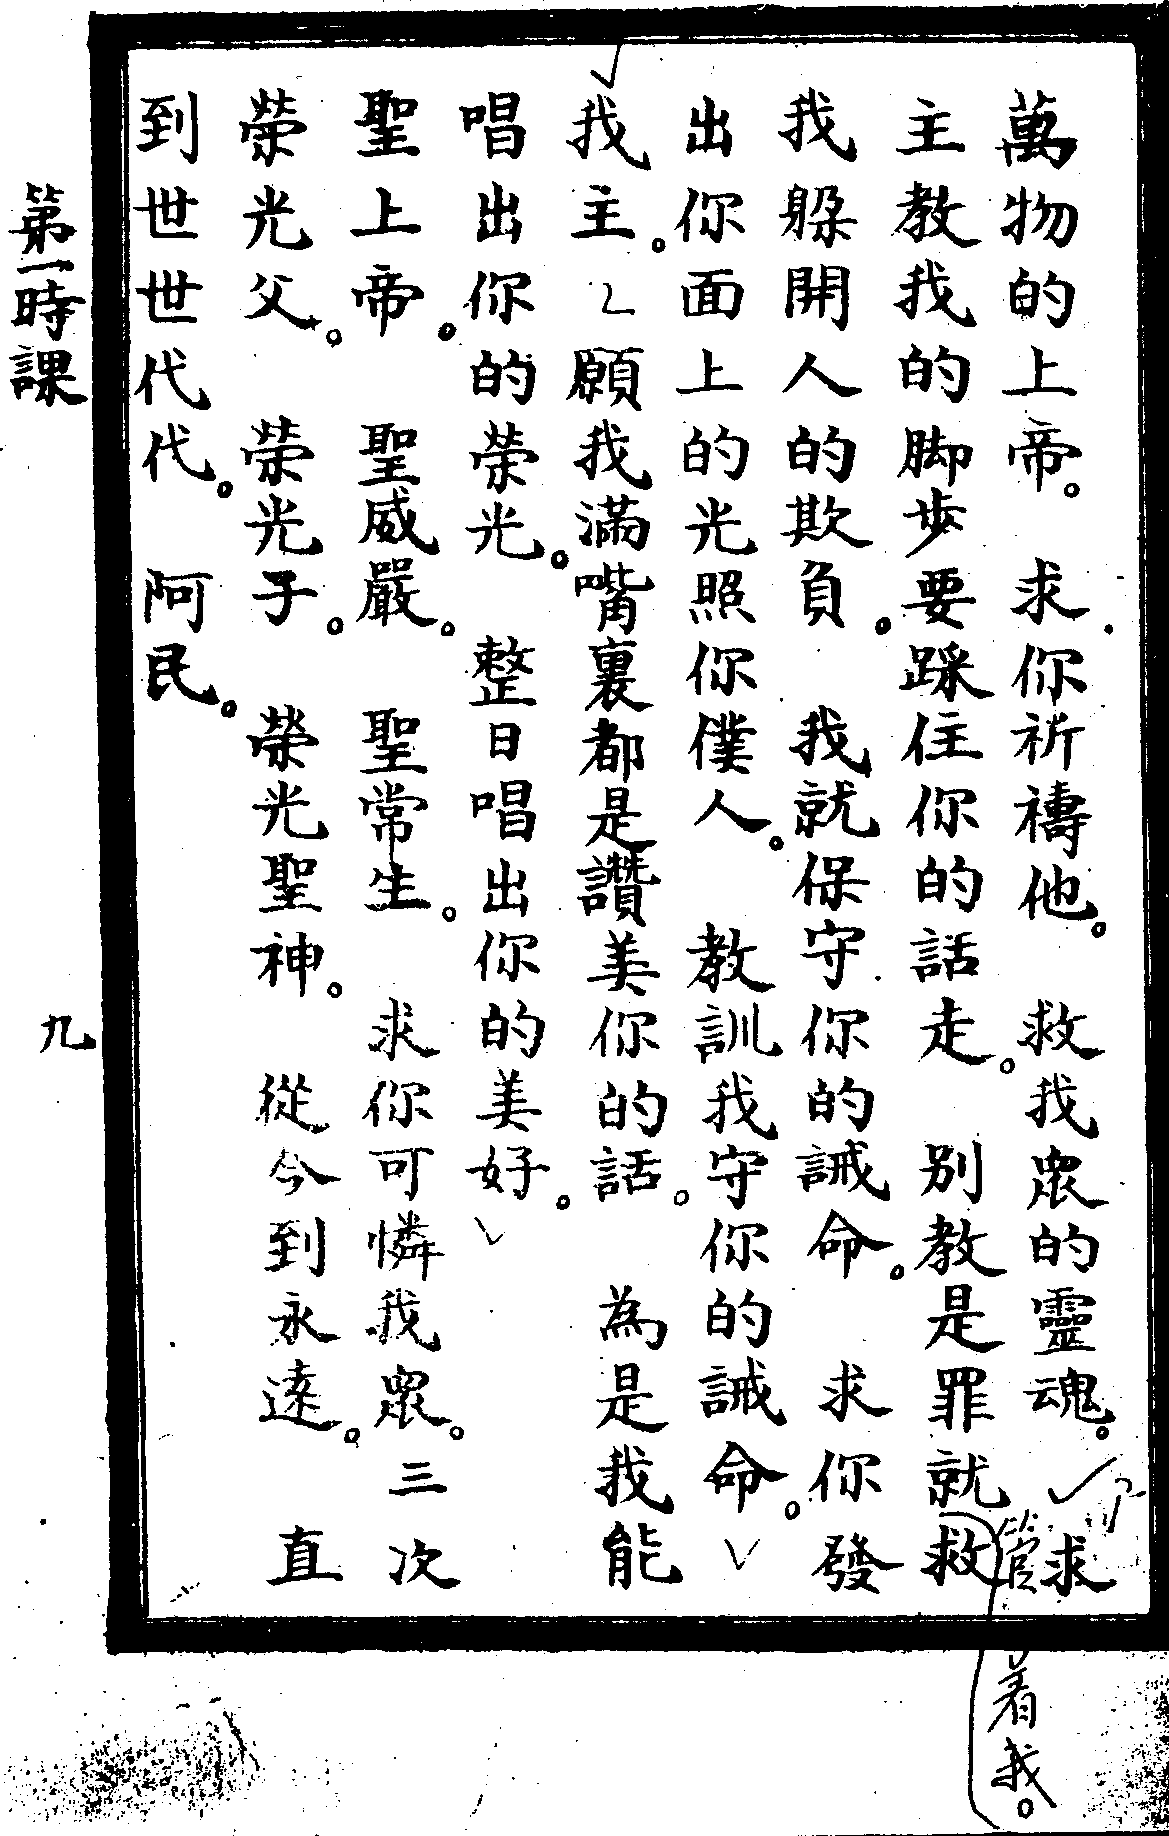 萬物的上帝。求你祈禱他。救我衆的靈魂。求
主教我的脚步要踩住你的話走。別教是罪就救
管着我。
我躲開人的欺負。我就保守你的誡命。求你發
出你面上的光照你僕人。教訓我守你的誡命。
我主。願我滿嘴裏都是讚美你的話。為是我能
唱出你的榮光。整日唱出你的美好。
聖上帝。聖威嚴。聖常生。求你可憐我衆。三次
榮光父。榮光子。榮光聖神。從今到永遠。直
到世世代代。阿民。
第一時課
九